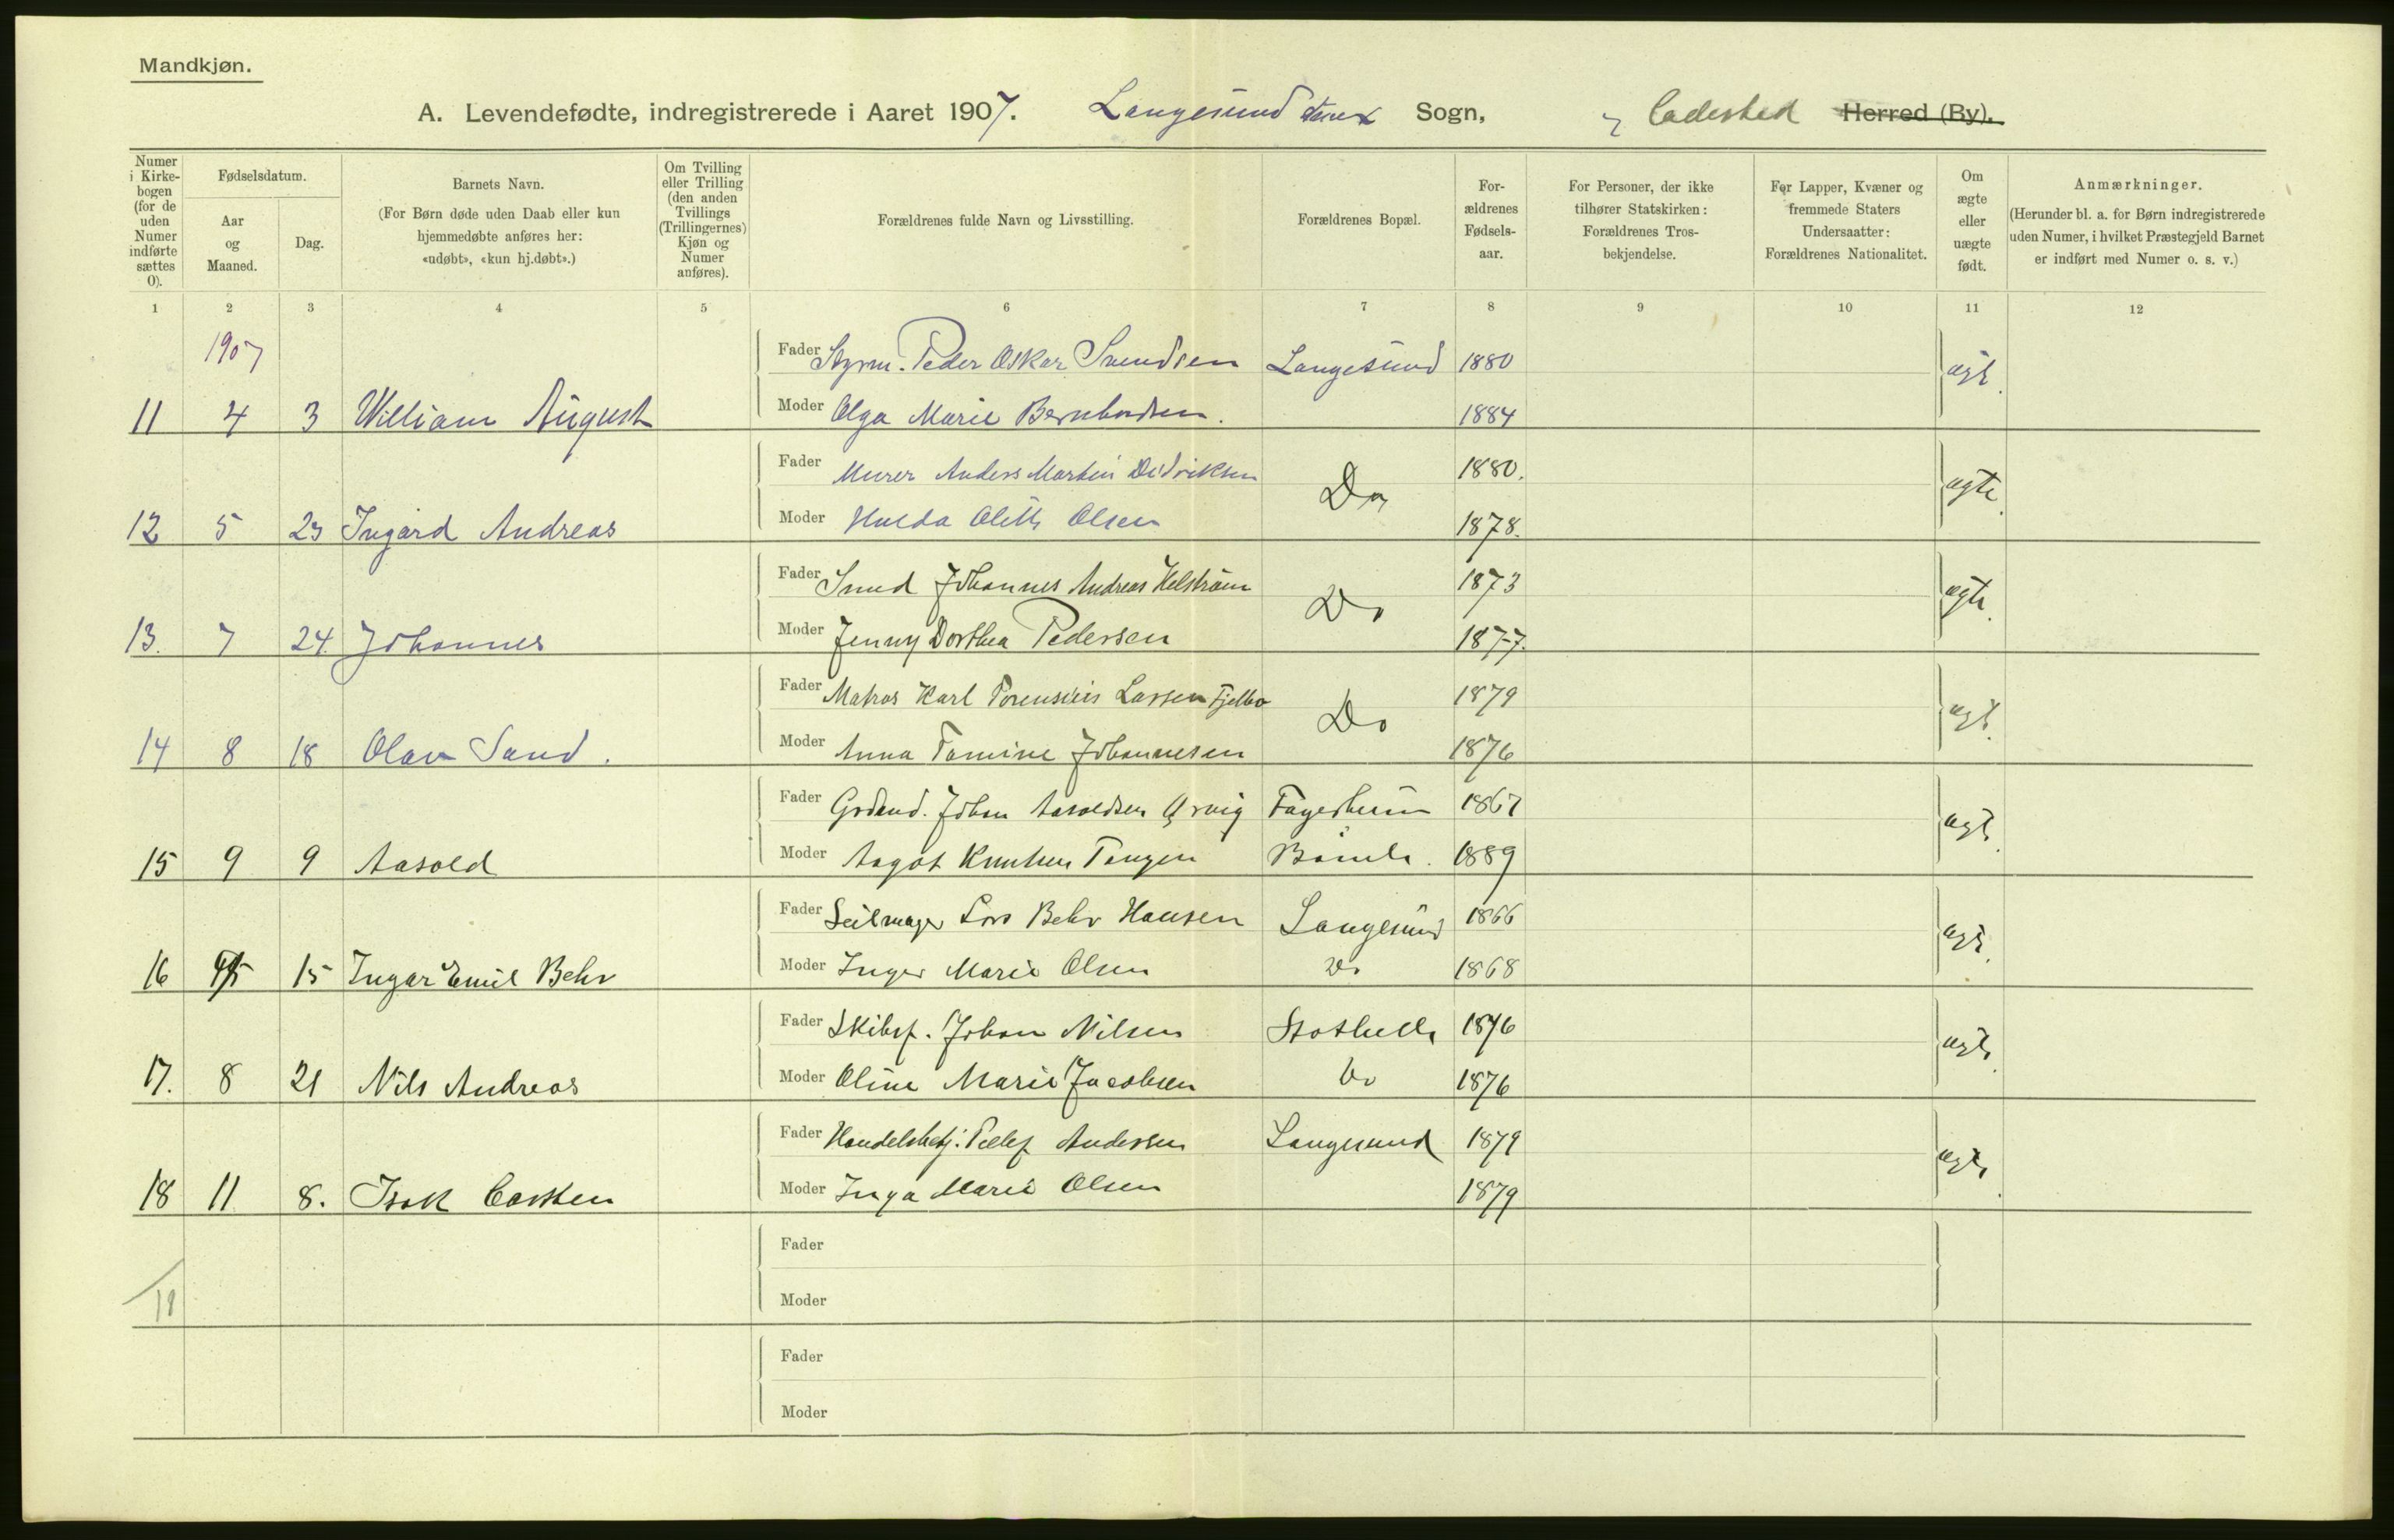 Mandkjøn.
A. Levendefødte, indregistrerede i Aaret 1907. Langesund Sogn, Ladested Herred (By).
Numer i Kirkebogen (for de uden Numer indførte sættes 0).
Fødselsdatum.
Aar og Maaned.
Dag.
Barnets Navn.
(For Børn døde uden Daab eller kun hjemmedøbte anføres her: «udøbt», «kun hj.døbt».)
Om Tvilling eller Trilling (den anden Tvillings (Trillingernes) Kjøn og Numer anføres).
Forældrenes fulde Navn og Livsstilling.
Forældrenes Bopæl.
Forældrenes Fødselsaar.
For Personer, der ikke tilhører Statskirken: Forældrenes Trosbekjendelse.
For Lapper, Kvæner og fremmede Staters Undersaatter: Forældrenes Nationalitet.
Om ægte eller uægte født.
Anmærkninger.
(Herunder bl. a. for Børn indregistrerede uden Numer, i hvilket Præstegjeld Barnet er indført med Numer o. s. v.)
1 2 3 4 5 6 7 8 9 10 11 12
1907
Fader Styrm. Peder Oskar Svendsen Langesund 1880 ægt.
11 4 3 William August Moder Olga Marie Bernhardsen. 1884
Fader Murer Anders Martin Didriksen Do 1880. ægte
12 5 23 Ingard Andreas Moder Hulda Olette Olsen 1878.
Fader Smed Johannes Andreas Helstrøm Do 1873 ægte.
13. 7 24. Johannes Moder Jenny Dorthea Pedersen 1877.
Fader Matros Karl Lassen Fjelbo Do 1879 ægt.
14 8 18 Olav Sand. Moder Anna Tomine Johannesen 1876
Fader Johan Aasoldsen Fagerheim 1867 ægt.
15 9 9 Aasold Moder Aagot Knutsen Tangen Bamle. 1889
Fader Seilmager Lars Behr Hansen Langesund 1866 ægt.
16 15 Ingar Emil Behr Moder Inger Marie Olsen Do 1868
Fader Skibsf. Johan Nilsen Stathelle 1876 ægt.
17. 8 21 Nils Andreas Moder Oline Marie Jacobsen Do 1876
Fader Handelsbetj. Tellef Andersen Langesund 1879 ægt.
18 11 8. Isak Carsten Moder Inga Marie Olsen 1879
Fader
Moder
Fader
Moder